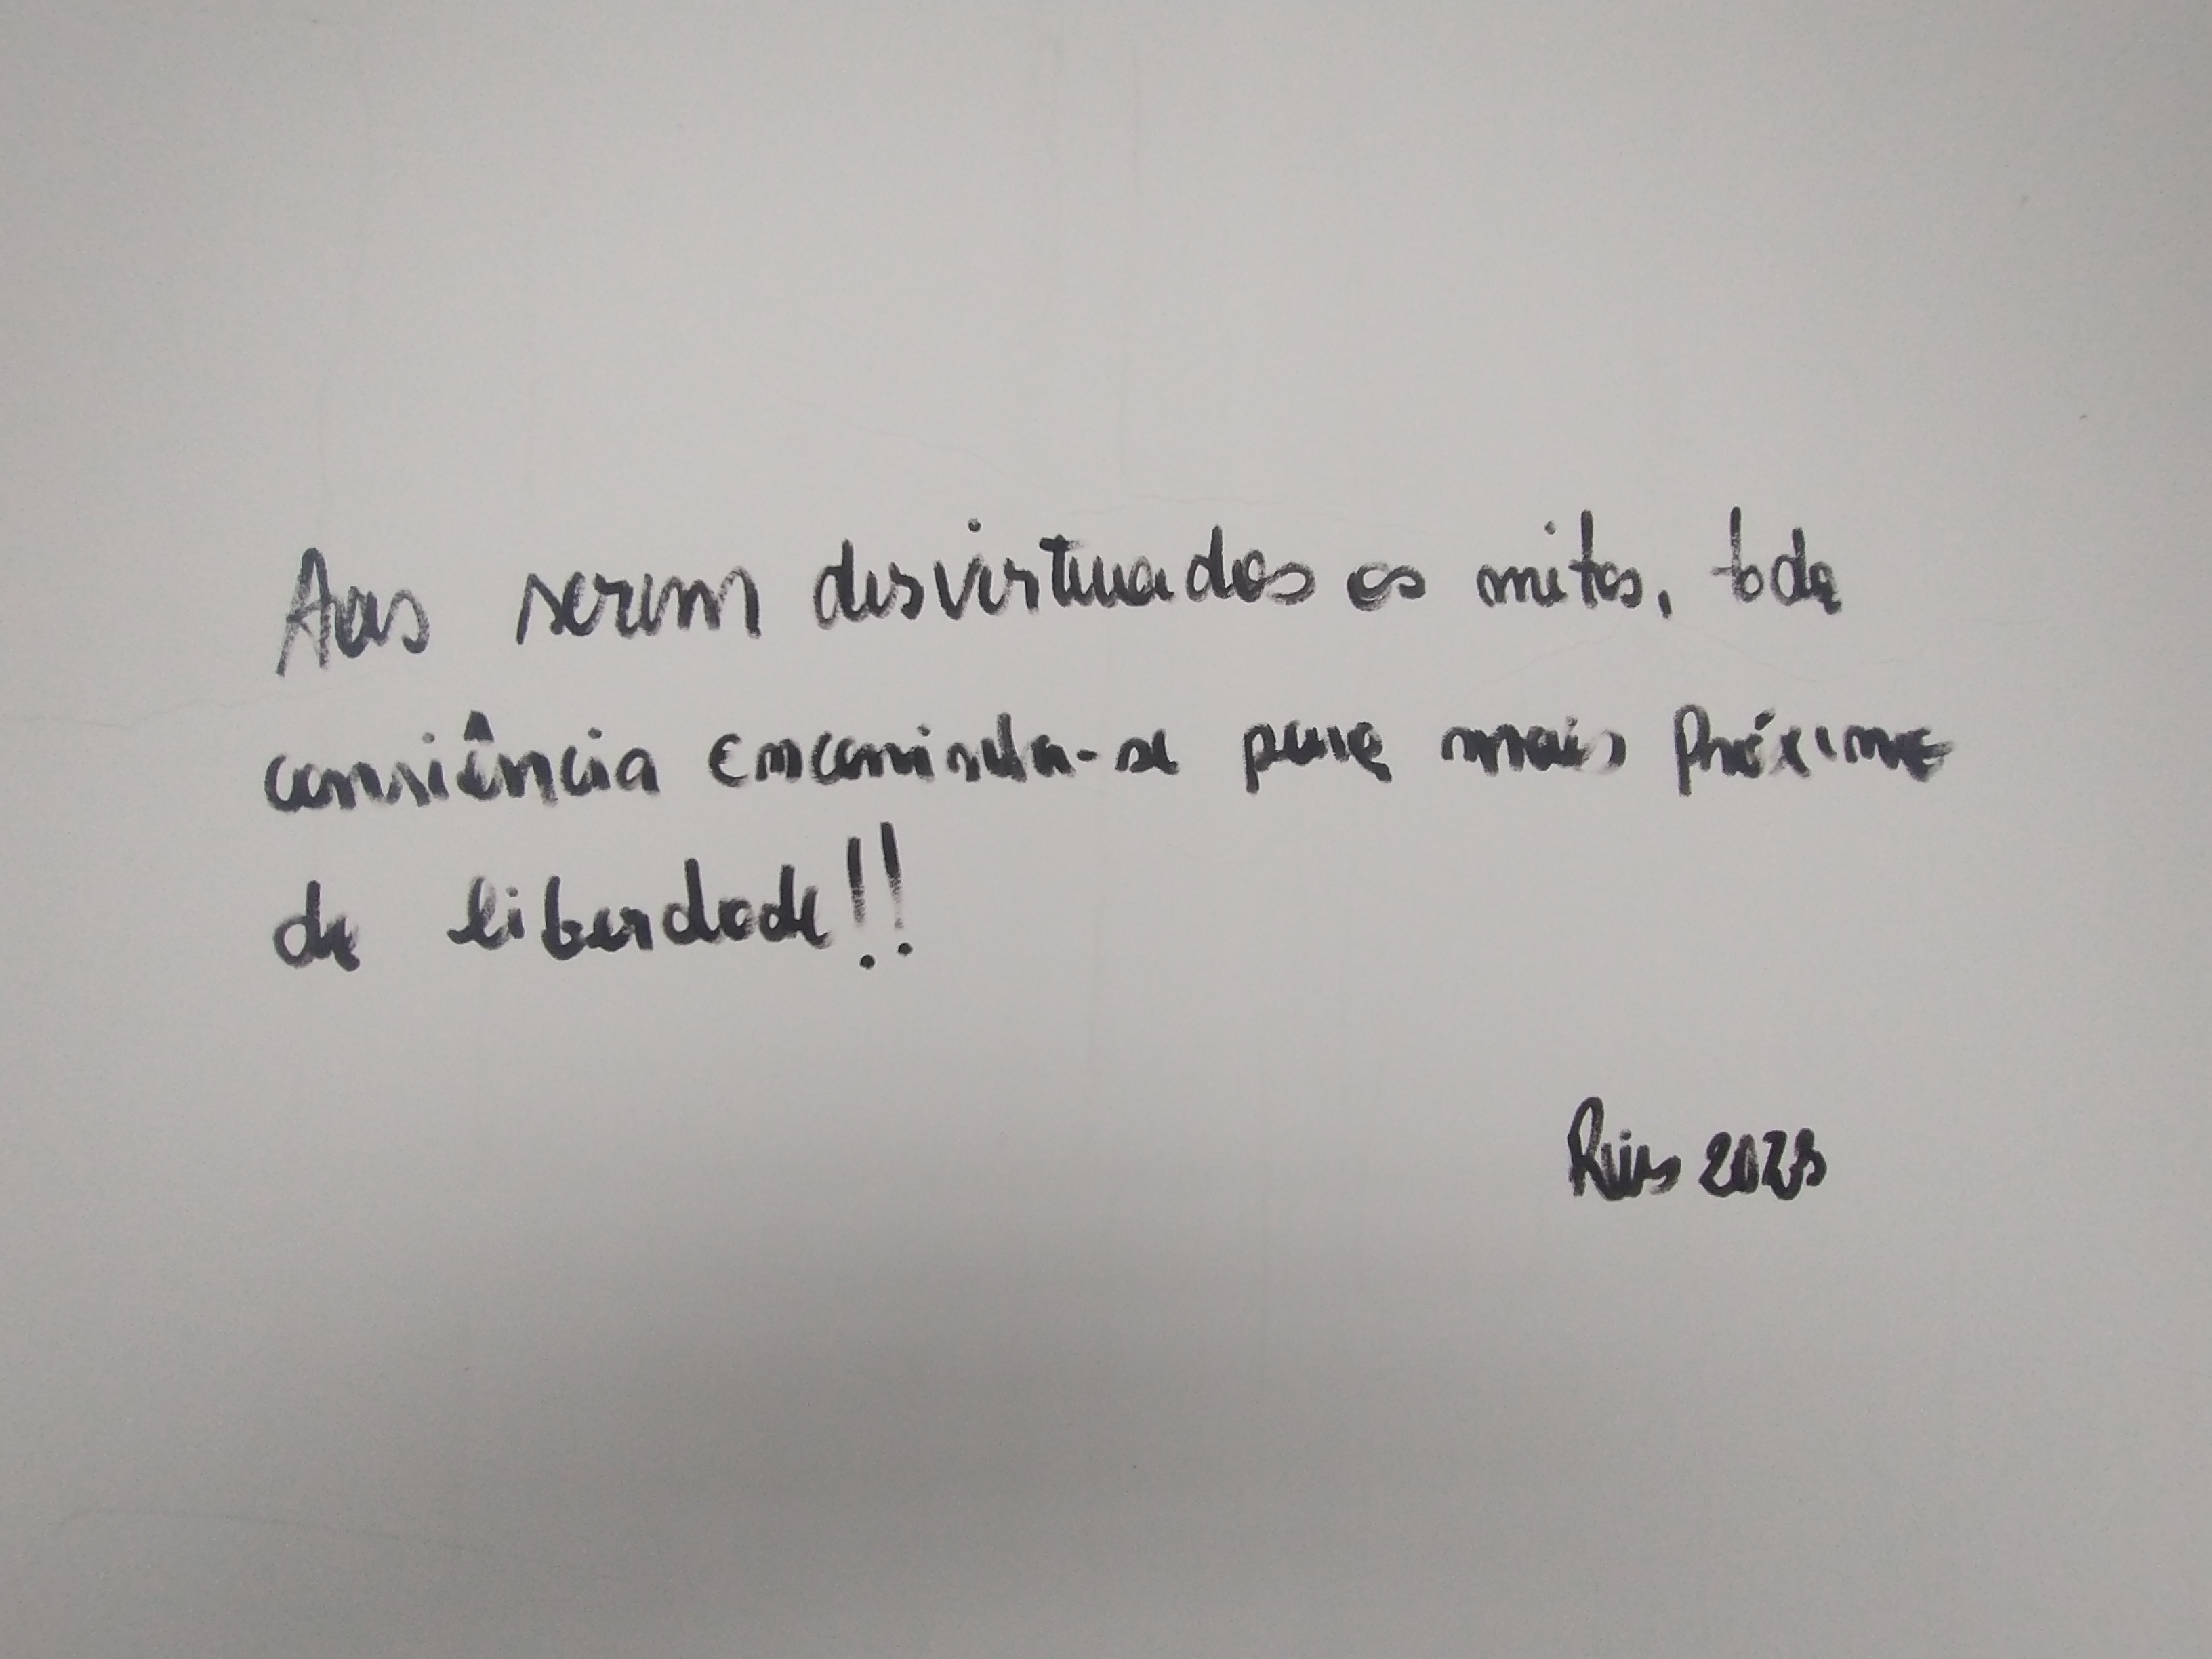 Aos serem desvirtuados os mitos, toda
consciência encaminha-se para mais próximo
da liberdade!!
Rius 2023